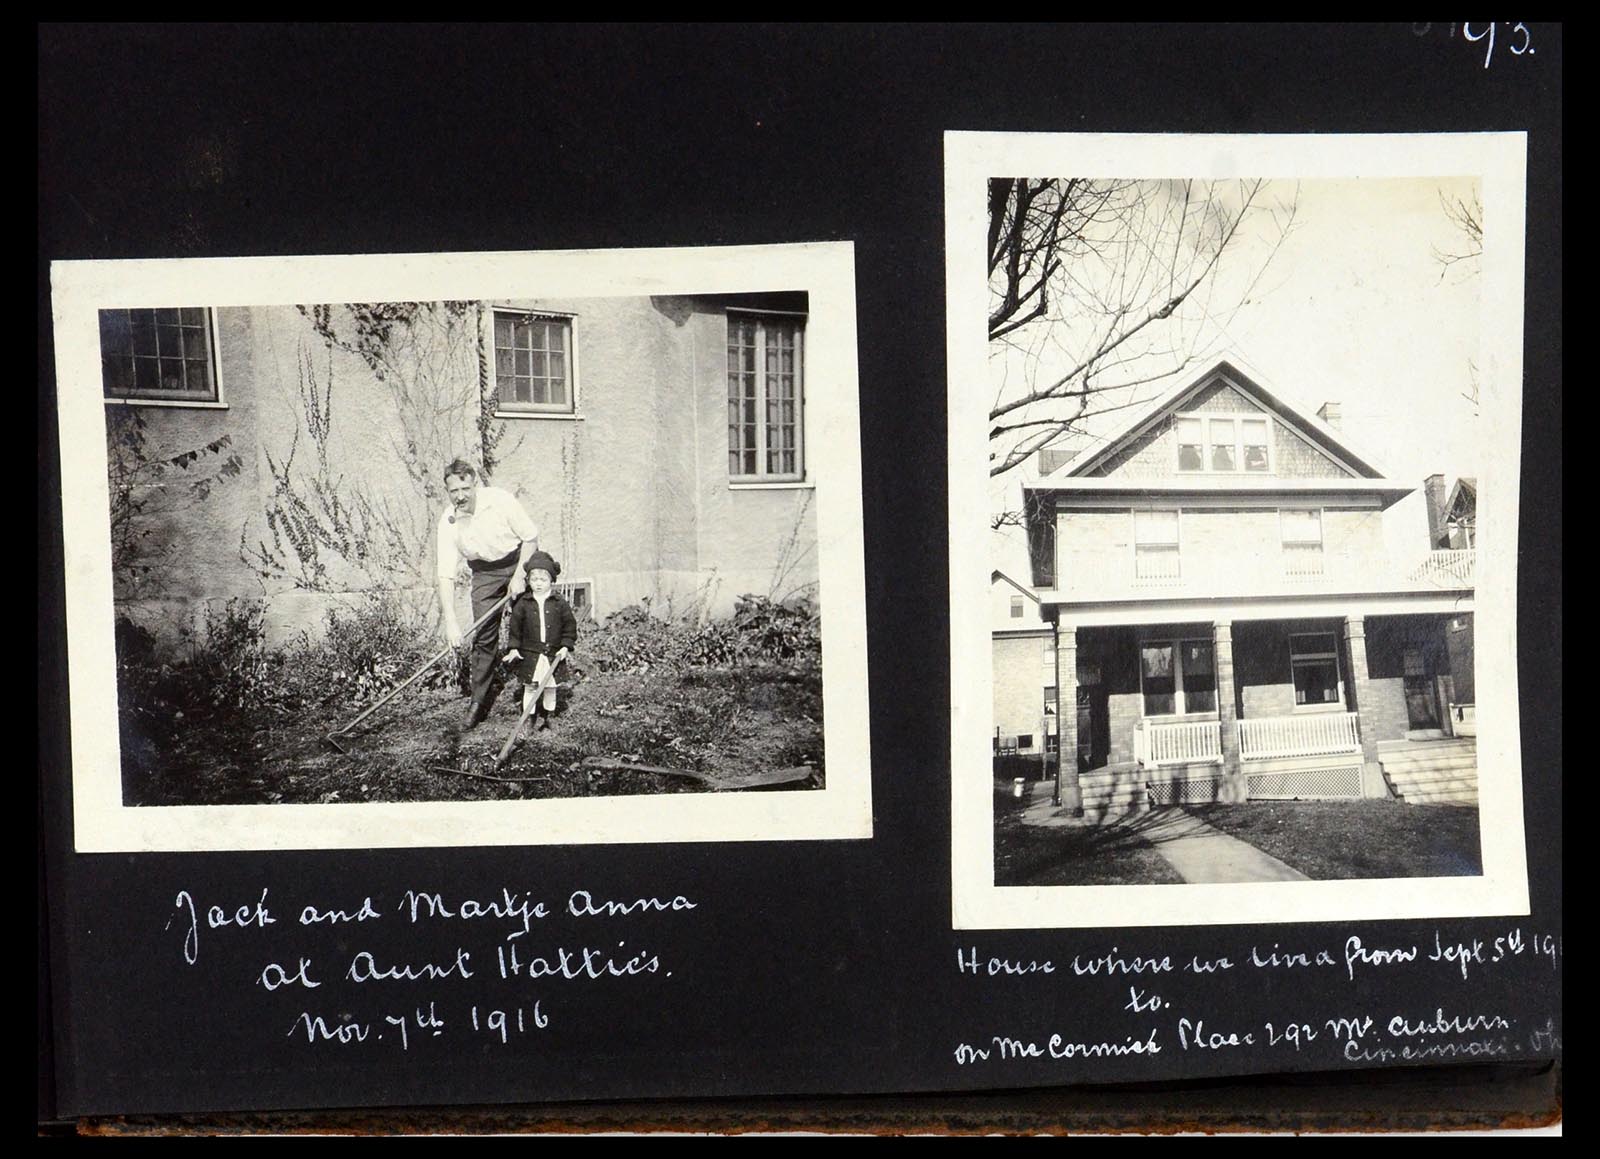 93.
Jack and Martje Anna
at Aunt Hattie's.
Nov. 7th 1916
House where we lived from Sept 5th 19
to.
on McCormick Place 292 Mt. Auburn
Cincinnati. Oh